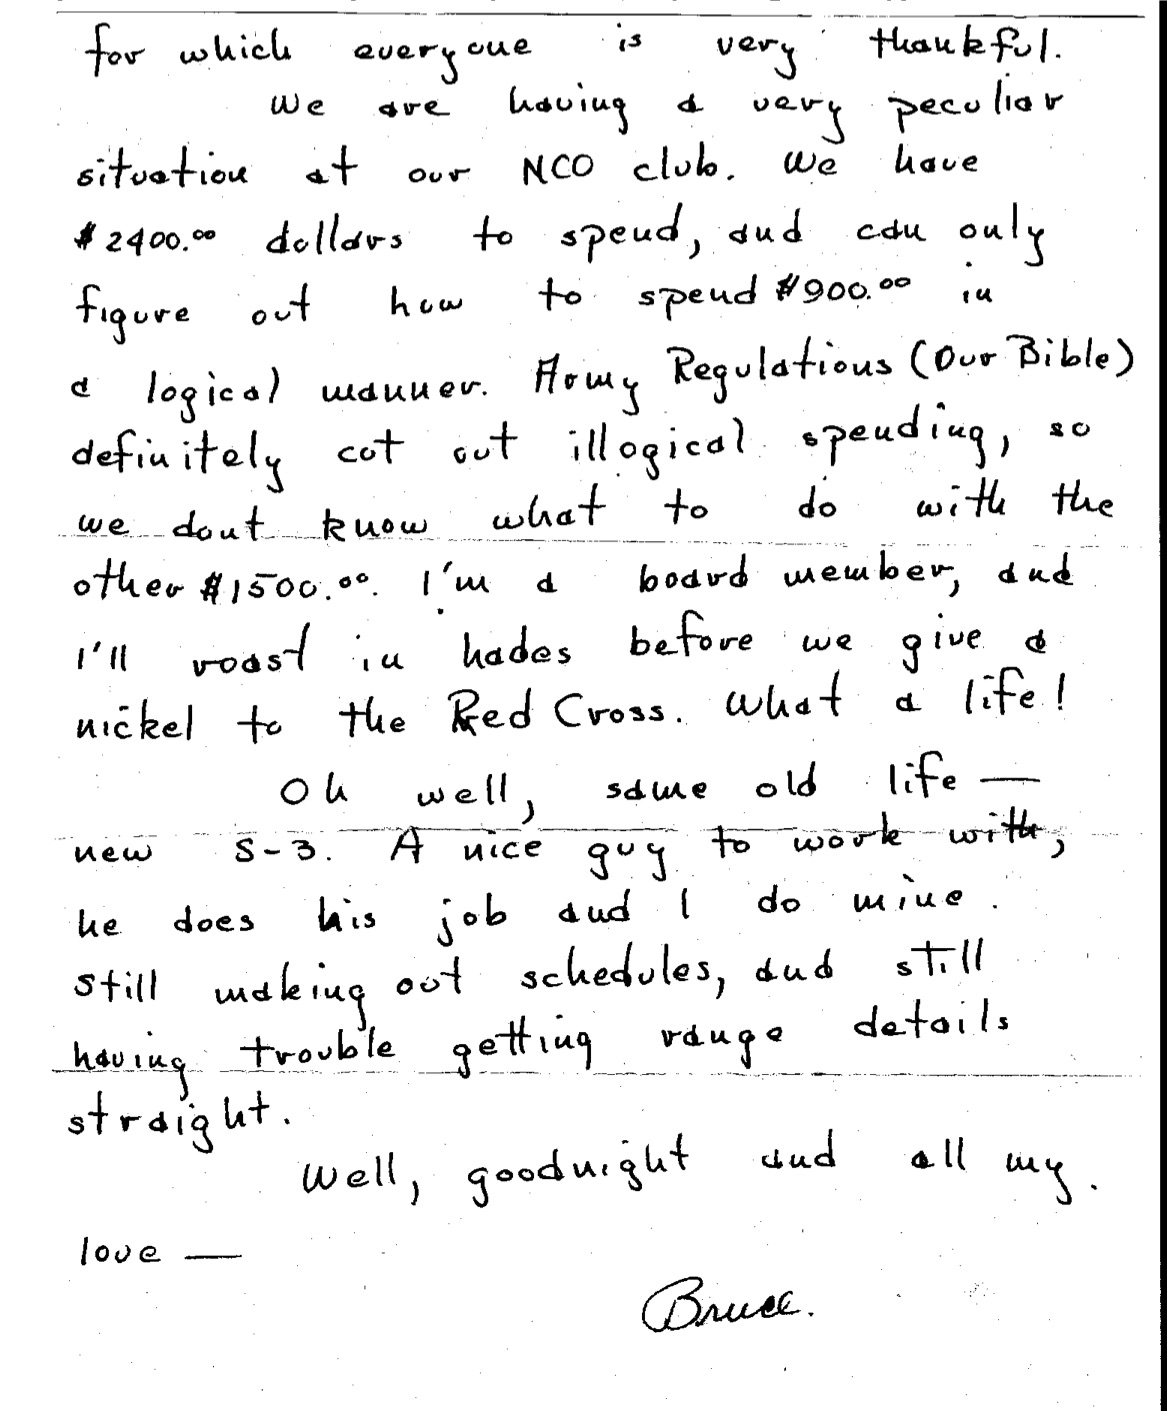 for which everyone is very thankful.
We are having a very peculiar
situation at our NCO club. We have
$2400.00 dollars to spend, and can only
figure out how to spend $900.00 in
a logical manner. Army Regulations (Our Bible)
definitely cut out illogical spending, so
we dont know what to do with the
other $1500.00. I'm a board member, and
I'll roast in hades before we give a
nickel to the Red Cross. What a life!
Oh well, same old life —
new S-3. A nice guy to work with,
he does his job and I do mine.
Still making out schedules, and still
having trouble getting range details
straight.
Well, goodnight and all my
love —
Bruce.